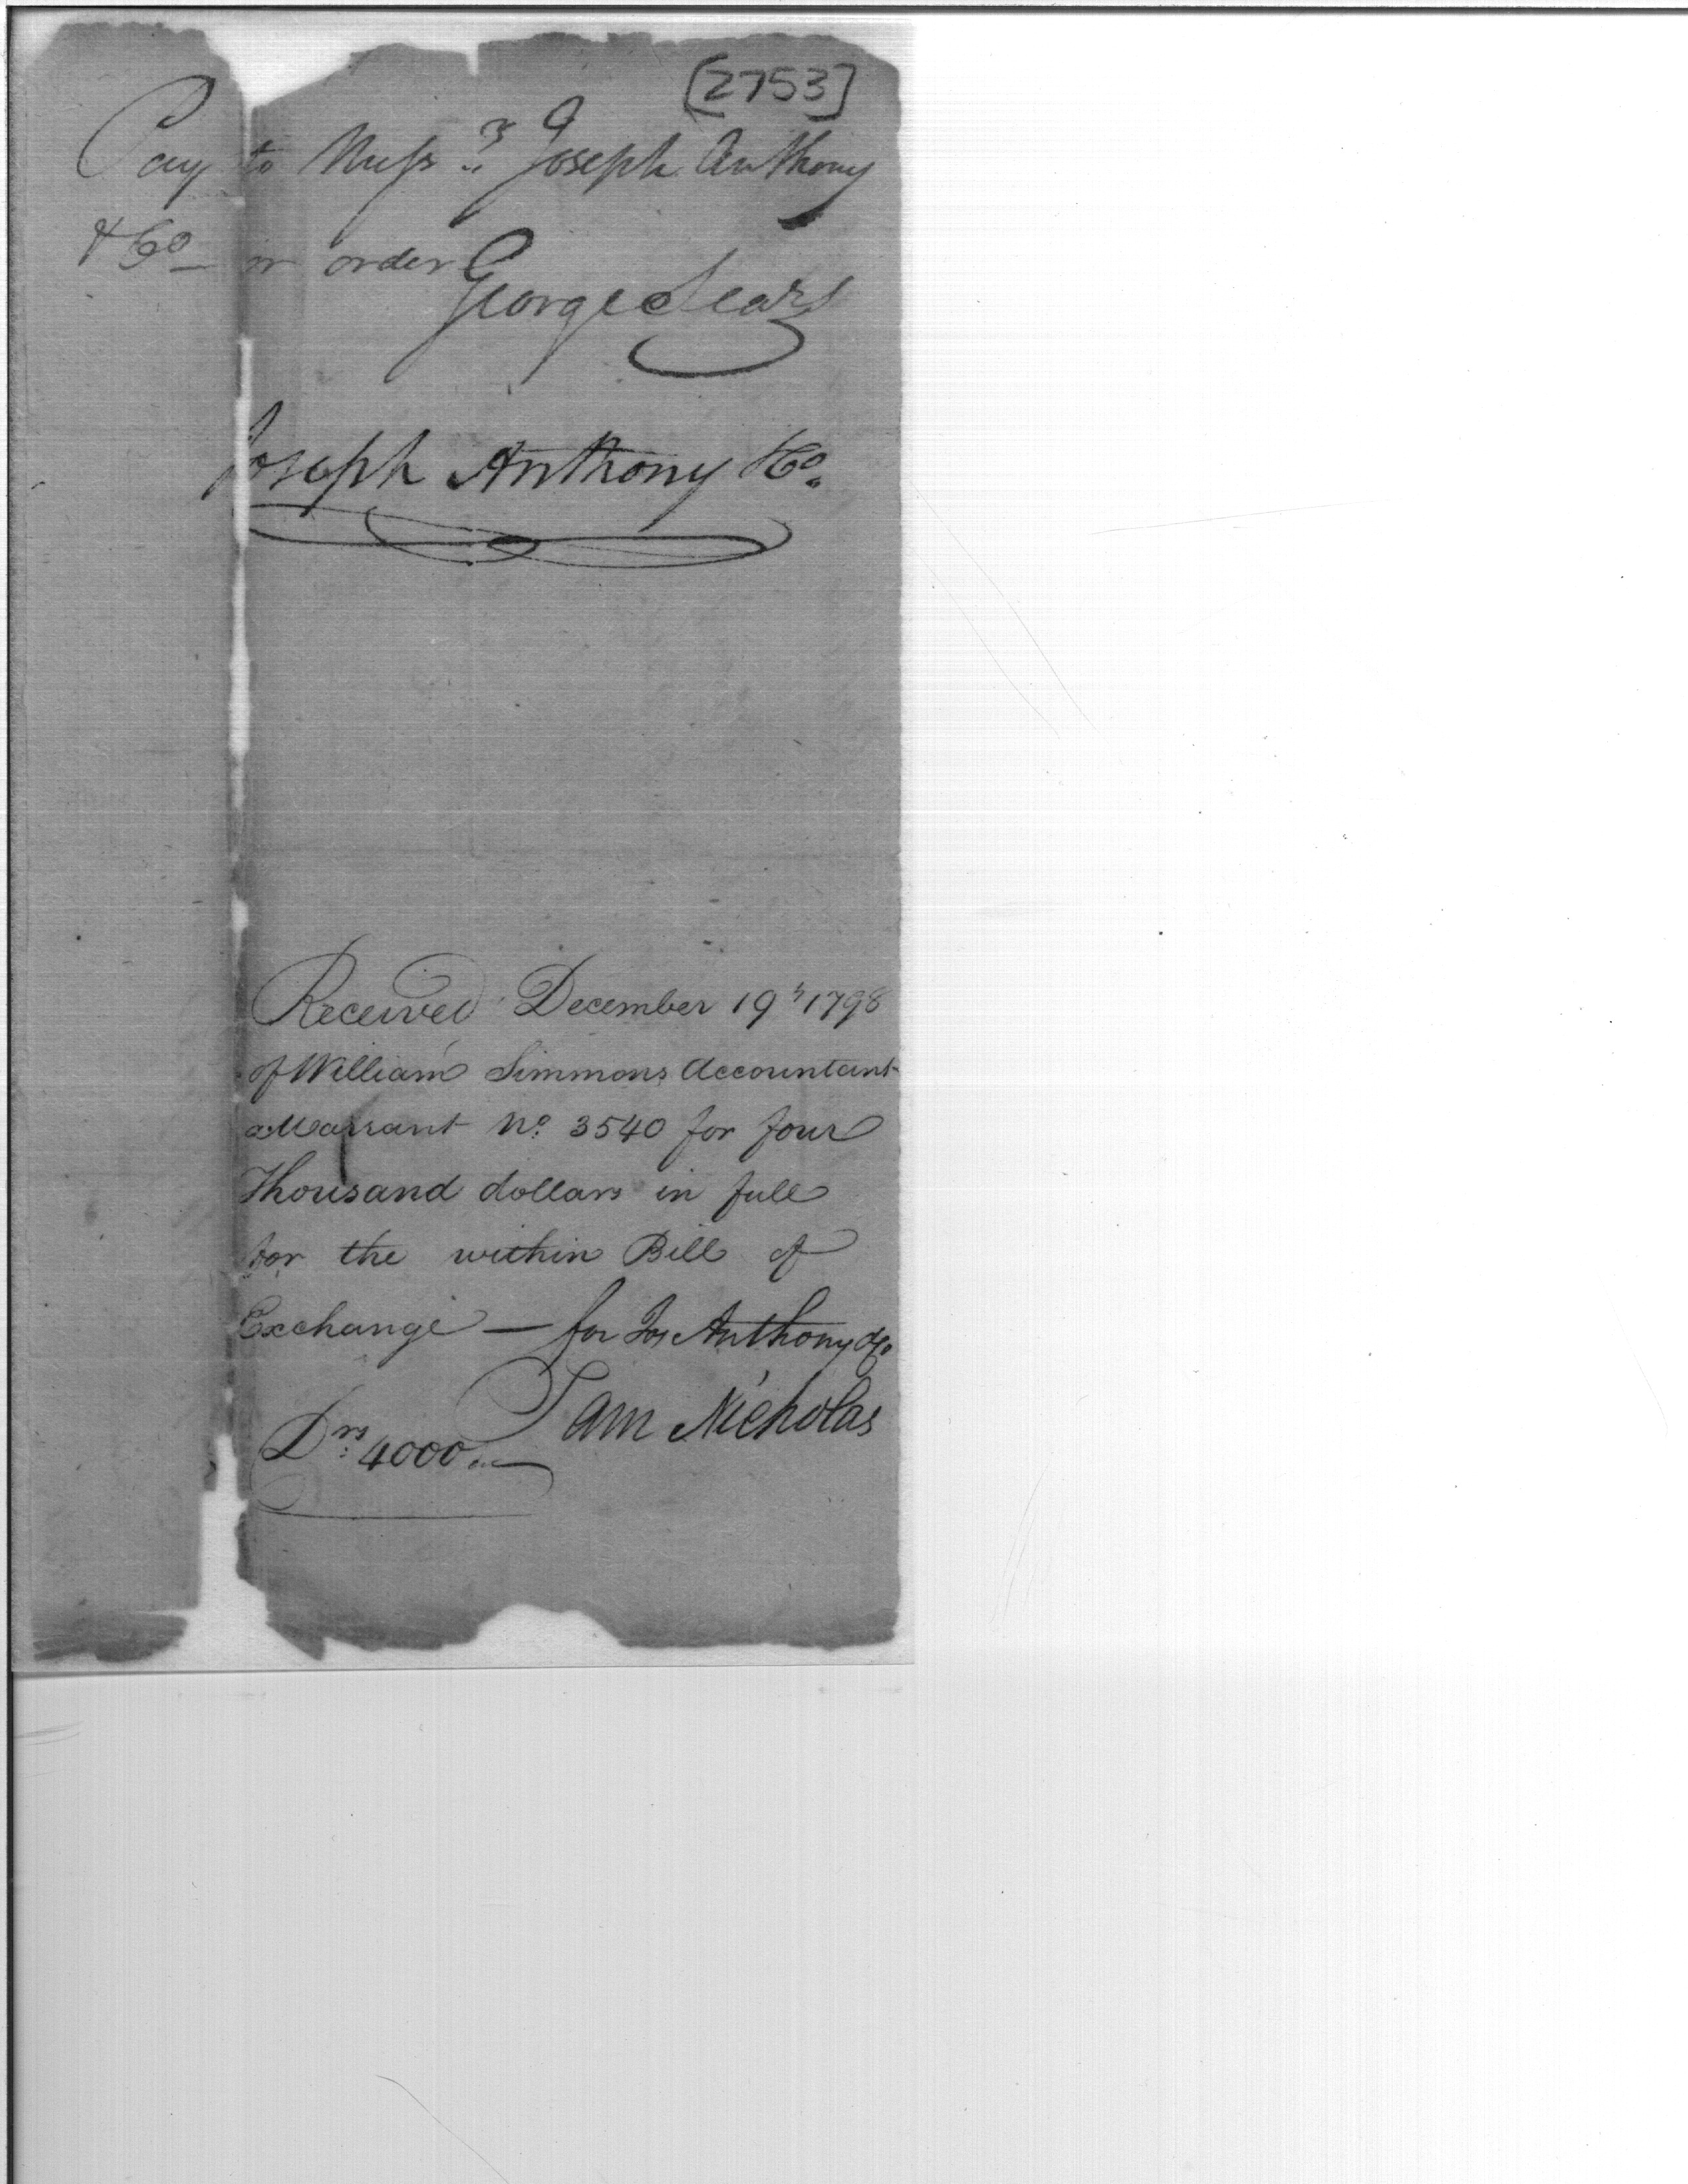 [2753]
Pay to Messrs Joseph Anthony
& Co or order
George Sears
Joseph Anthony & Co.
Received December 19th 1798
of William Simmons Accountant
a Warrant No. 3540 for four
Thousand dollars in full
for the within Bill of
Exchange — for Jos Anthony & Co
Sam Nicholas
Drs 4000